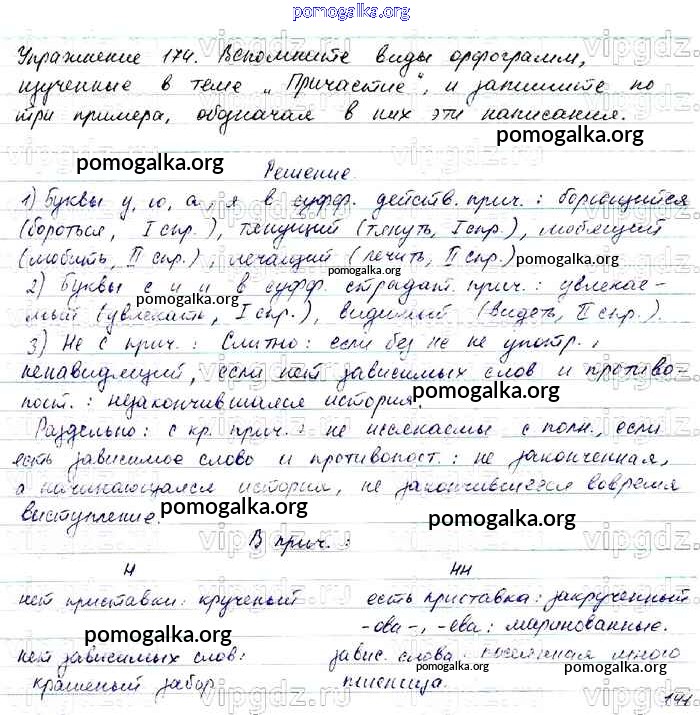 pomogalka.org
Упражнение 174. Вспомните виды орфограмм,
изученные в теме „Причастие", и запишите по
три примера, обозначая в них эти написания.
pomogalka.org pomogalka.org
Решение.
1) Буквы у, ю, а, я в суфф. действ. прич.: борющийся
(бороться, I спр.), тянущий (тянуть, I спр.), любящий
(любить, II спр.), лечащий (лечить, II спр.)
pomogalka.org pomogalka.org
2) Буквы е и и в суфф. страдат. прич.: увлекае-
мый (увлекать, I спр.), видимый (видеть, II спр.).
3) Не с прич.: Слитно: если без не не употр.,
ненавидящий, если нет зависимых слов и противо-
пост.: незакончившаяся история.
pomogalka.org pomogalka.org
Раздельно: с кр. прич.: не иссекаемы с полн., если
есть зависимое слово и противопост.: не законченная,
а начинающаяся история, не закончившееся вовремя
выступление.
pomogalka.org pomogalka.org
В прич.:
н нн
нет приставки: крученый есть приставка: закрученный
-ова-, -ева: маринованные.
pomogalka.org pomogalka.org
нет зависимых слов: завис. слова: посеянная много
крашеный забор пшеница.
pomogalka.org pomogalka.org
141
vipgdz.com